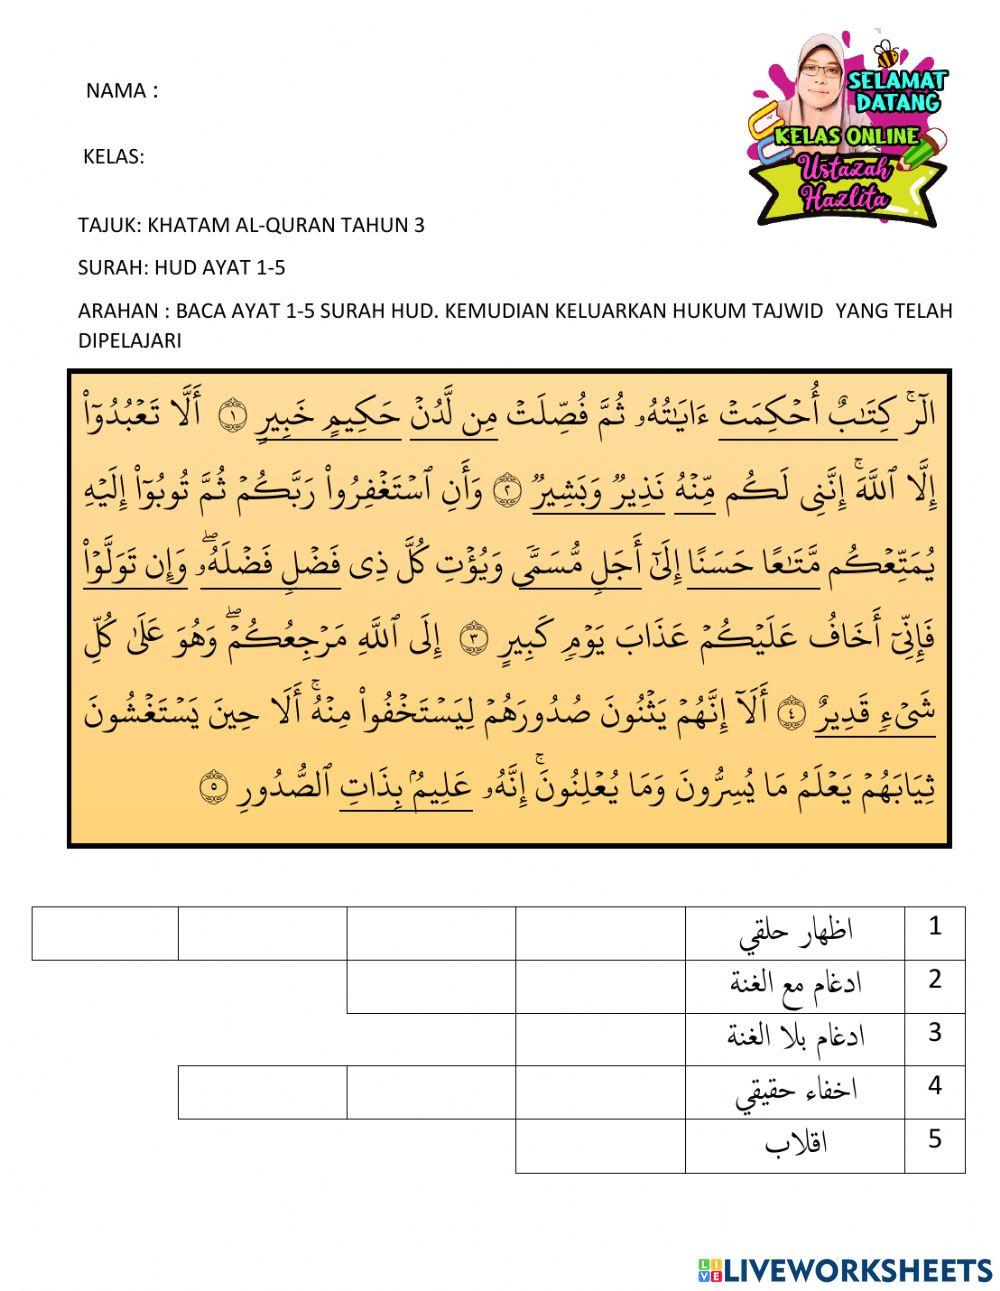 NAMA :
SELAMAT
DATANG
KELAS ONLINE
Ustazah
Hazlita
KELAS:
TAJUK: KHATAM AL-QURAN TAHUN 3
SURAH: HUD AYAT 1-5
ARAHAN : BACA AYAT 1-5 SURAH HUD. KEMUDIAN KELUARKAN HUKUM TAJWID YANG TELAH
DIPELAJARI
الٓرۚ كِتَٰبٌ أُحۡكِمَتۡ ءَايَٰتُهُۥ ثُمَّ فُصِّلَتۡ مِن لَّدُنۡ حَكِيمٍ خَبِيرٍ ١ أَلَّا تَعۡبُدُوٓاْ
إِلَّا ٱللَّهَۚ إِنَّنِي لَكُم مِّنۡهُ نَذِيرٞ وَبَشِيرٞ ٢ وَأَنِ ٱسۡتَغۡفِرُواْ رَبَّكُمۡ ثُمَّ تُوبُوٓاْ إِلَيۡهِ
يُمَتِّعۡكُم مَّتَٰعًا حَسَنًا إِلَىٰٓ أَجَلٖ مُّسَمّٗى وَيُؤۡتِ كُلَّ ذِي فَضۡلٖ فَضۡلَهُۥۖ وَإِن تَوَلَّوۡاْ
فَإِنِّيٓ أَخَافُ عَلَيۡكُمۡ عَذَابَ يَوۡمٖ كَبِيرٍ ٣ إِلَى ٱللَّهِ مَرۡجِعُكُمۡۖ وَهُوَ عَلَىٰ كُلِّ
شَيۡءٖ قَدِيرٌ ٤ أَلَآ إِنَّهُمۡ يَثۡنُونَ صُدُورَهُمۡ لِيَسۡتَخۡفُواْ مِنۡهُۚ أَلَا حِينَ يَسۡتَغۡشُونَ
ثِيَابَهُمۡ يَعۡلَمُ مَا يُسِرُّونَ وَمَا يُعۡلِنُونَۚ إِنَّهُۥ عَلِيمُۢ بِذَاتِ ٱلصُّدُورِ ٥
1 اظهار حلقي
2 ادغام مع الغنة
3 ادغام بلا الغنة
4 اخفاء حقيقي
5 اقلاب
LIVE LIVEWORKSHEETS